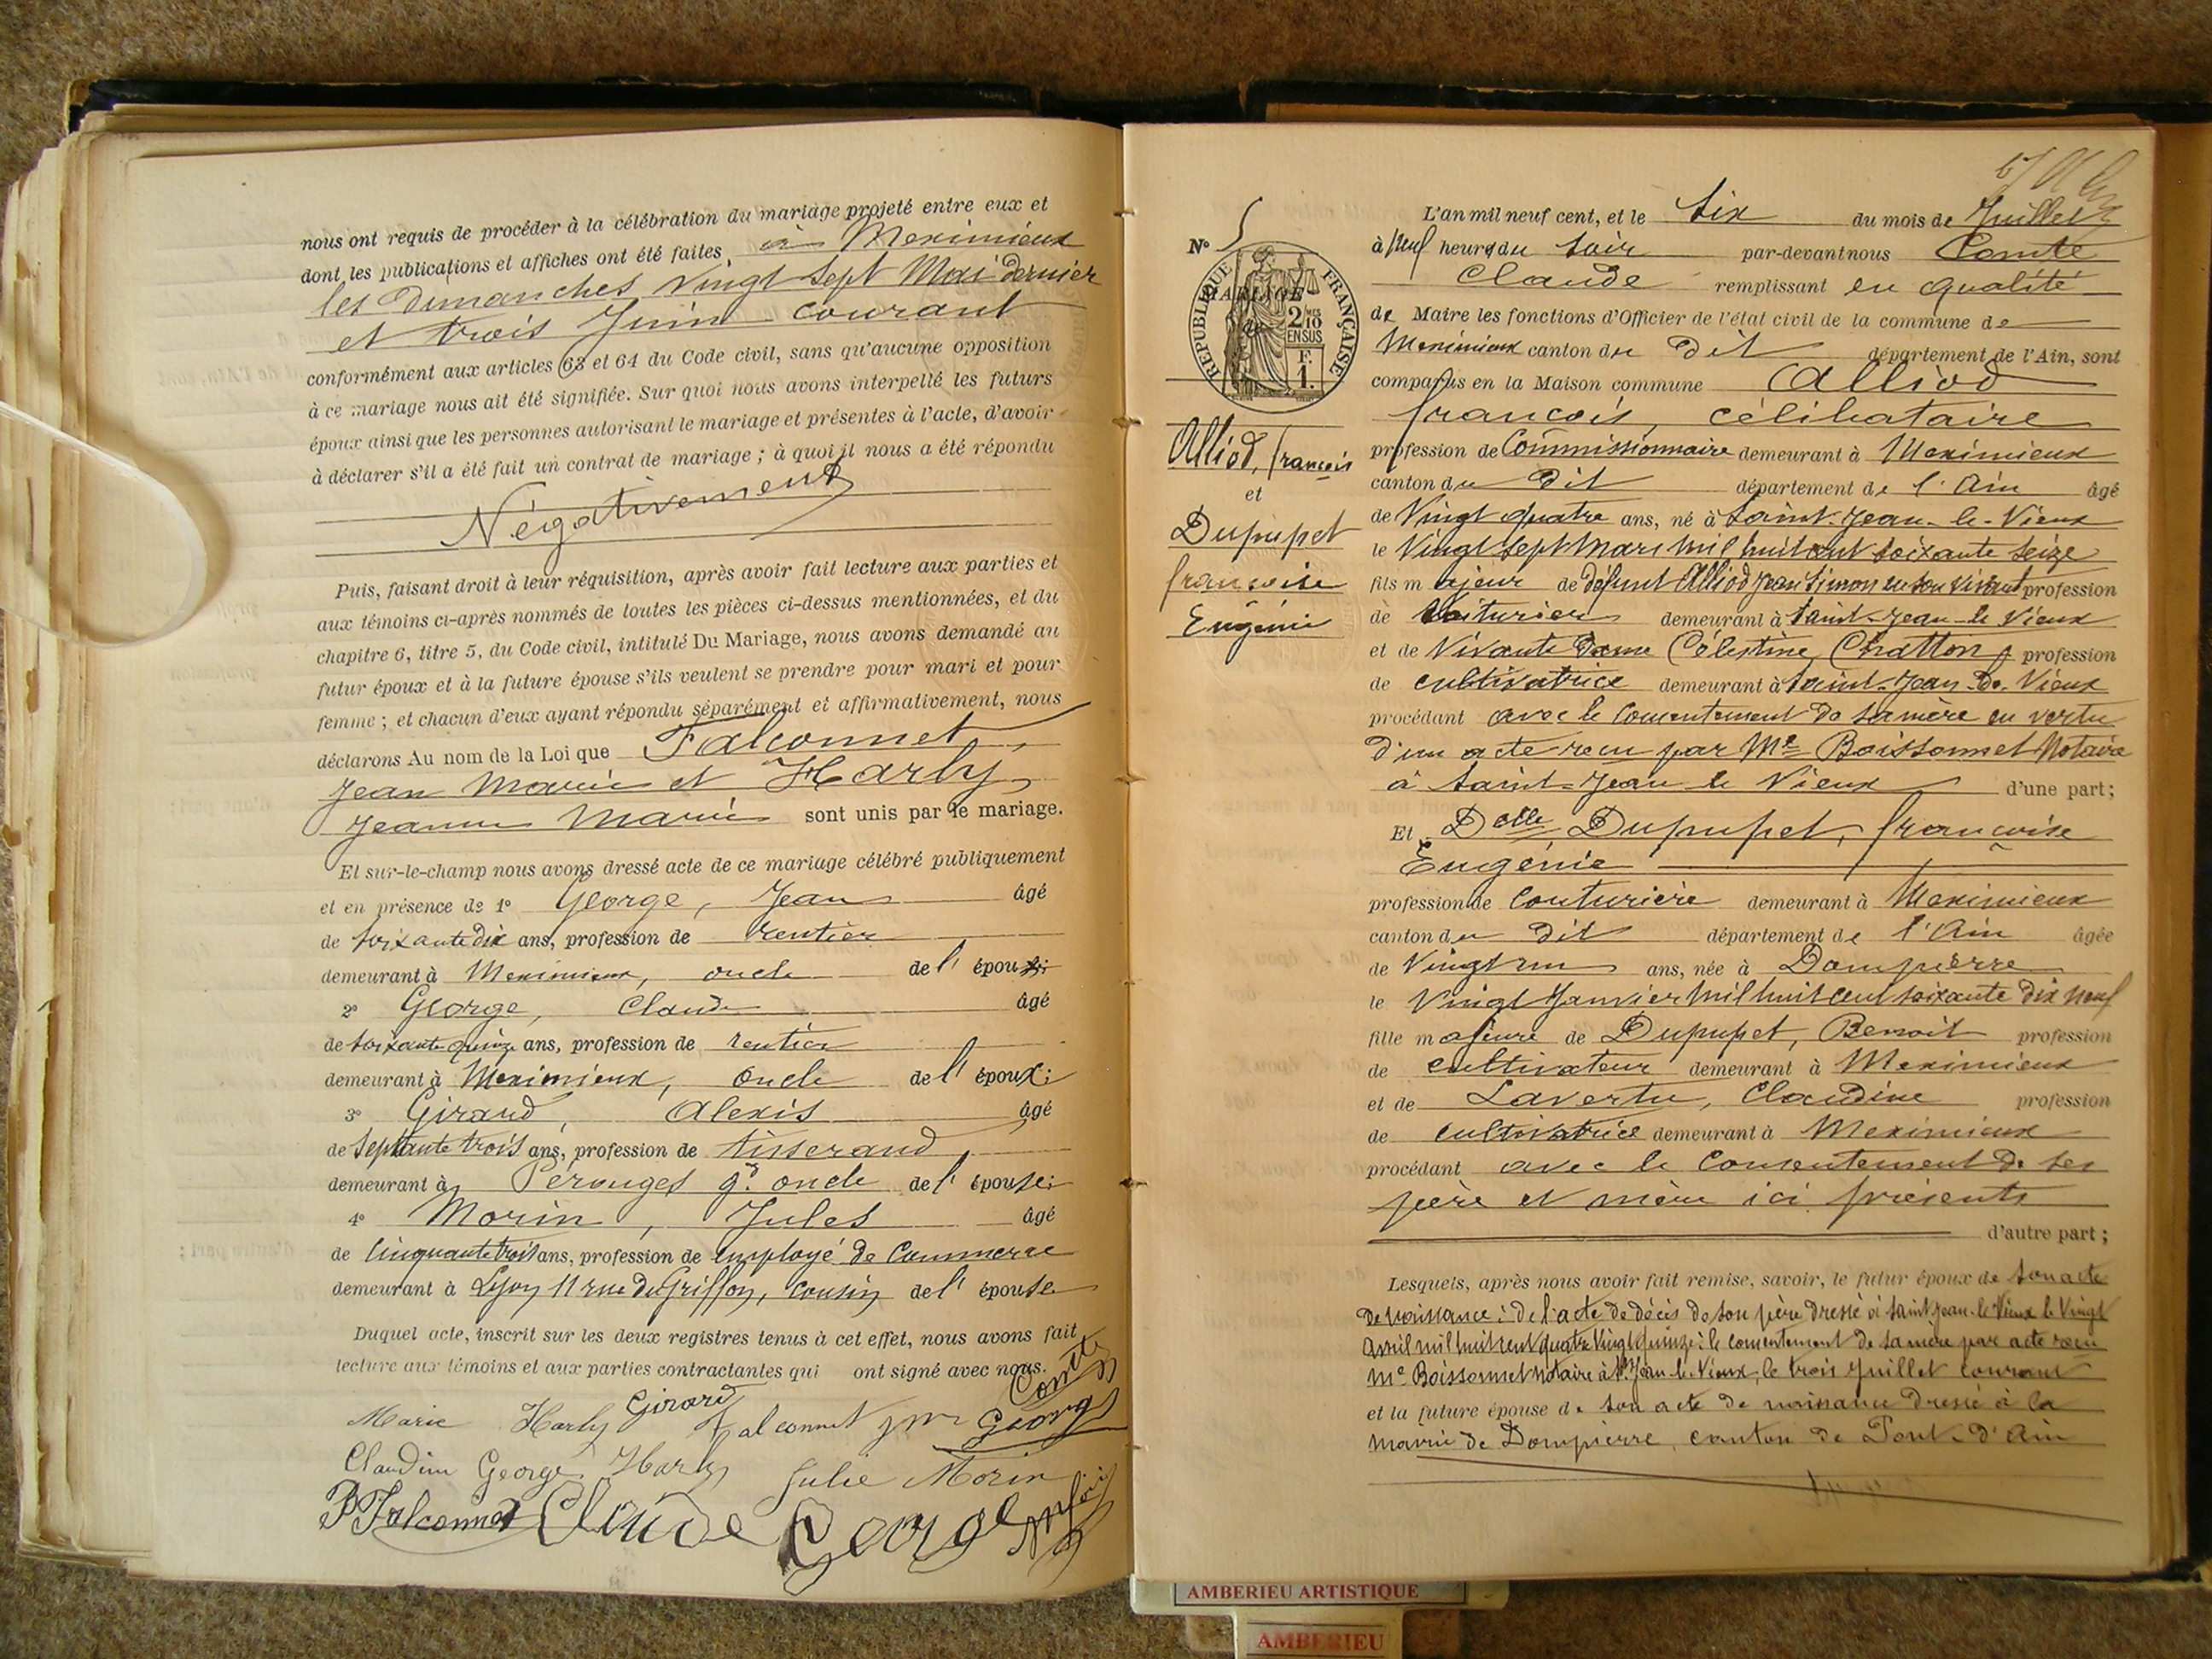 nous ont requis de procéder à la célébration du mariage projeté entre eux et
dont les publications et affiches ont été faites à Meximieux
les Dimanches Vingt Sept Mai dernier
et trois Juin courant
conformément aux articles 63 et 64 du Code civil, sans qu'aucune opposition
à ce mariage nous ait été signifiée. Sur quoi nous avons interpellé les futurs
époux ainsi que les personnes autorisant le mariage et présentes à l'acte, d'avoir
à déclarer s'il a été fait un contrat de mariage ; à quoi il nous a été répondu
Négativement
Puis, faisant droit à leur réquisition, après avoir fait lecture aux parties et
aux témoins ci-après nommés de toutes les pièces ci-dessus mentionnées, et du
chapitre 6, titre 5, du Code civil, intitulé Du Mariage, nous avons demandé au
futur époux et à la future épouse s'ils veulent se prendre pour mari et pour
femme ; et chacun d'eux ayant répondu séparément et affirmativement, nous
déclarons Au nom de la Loi que Falconnet,
Jean Marie et Harly
Jeanne Marie sont unis par le mariage.
Et sur-le-champ nous avons dressé acte de ce mariage célébré publiquement
et en présence de 1° George, Jean âgé
de soixante dix ans, profession de rentier
demeurant à Meximieux, oncle de l'
2° George, Claude âgé
de soixante quinze ans, profession de rentier
demeurant à Meximieux, oncle de l' époux ;
3° Giraud, Alexis âgé
de Septante trois ans, profession de tisserand
demeurant à Pérouges gd oncle de l' épouse ;
4° Morin, Jules âgé
de Cinquante trois ans, profession de employé de Commerce
demeurant à Lyon 11 rue du Griffon, cousin de l' épouse
Duquel acte, inscrit sur les deux registres tenus à cet effet, nous avons fait
lecture aux témoins et aux parties contractantes qui ont signé avec nous.
Comte
Marie Harly Girard Falconnet George
George Harly Julie Morin
Falconnet Claude George
N° 5
RÉPUBLIQUE FRANÇAISE
MARIAGE
2/10 EN SUS
F. 1.
Alliod, François
et
Dupupet
françoise
Eugénie
L'an mil neuf cent, et le six du mois de Juillet
à neuf heures du soir par-devant nous Comte
Claude remplissant en qualité
de Maire les fonctions d'Officier de l'état civil de la commune de
Meximieux canton du dit département de l'Ain, sont
comparus en la Maison commune Alliod
françois, célibataire
profession de Commissionnaire demeurant à Meximieux
canton du dit département de l'Ain âgé
de Vingt quatre ans, né à Saint-Jean-le-Vieux
le Vingt sept mars mil huit cent soixante seize
fils majeur de défunt Alliod Jean Simon en son vivant profession
de Voiturier demeurant à Saint-Jean-le Vieux
et de Vivante Dame Célestine Chatton profession
de cultivatrice demeurant à Saint-Jean-le-Vieux
procédant avec le consentement de sa mère en vertu
d'un acte reçu par Me Boissonnet Notaire
à Saint-Jean le Vieux d'une part ;
Et Delle Dupupet, françoise
Eugénie
profession de Couturière demeurant à Meximieux
canton du dit département de l'Ain âgée
de Vingt un ans, née à Dompierre
le Vingt Janvier mil huit cent soixante dix neuf
fille majeure de Dupupet, Benoit profession
de cultivateur demeurant à Meximieux
et de Lavertu, Claudine profession
de cultivatrice demeurant à Meximieux
procédant avec le consentement de ses
père et mère ici présents
d'autre part ;
Lesquels, après nous avoir fait remise, savoir, le futur époux de son acte
de naissance : de l'acte de décès de son père dressé à Saint Jean-le Vieux le Vingt
avril mil huit cent quatre vingt quinze : le consentement de sa mère par acte reçu
Me Boissonnet notaire à St Jean-le-Vieux, le trois Juillet courant
et la future épouse de son acte de naissance dressé à la
mairie de Dompierre, canton de Pont-d'Ain
AMBERIEU ARTISTIQUE
AMBERIEU